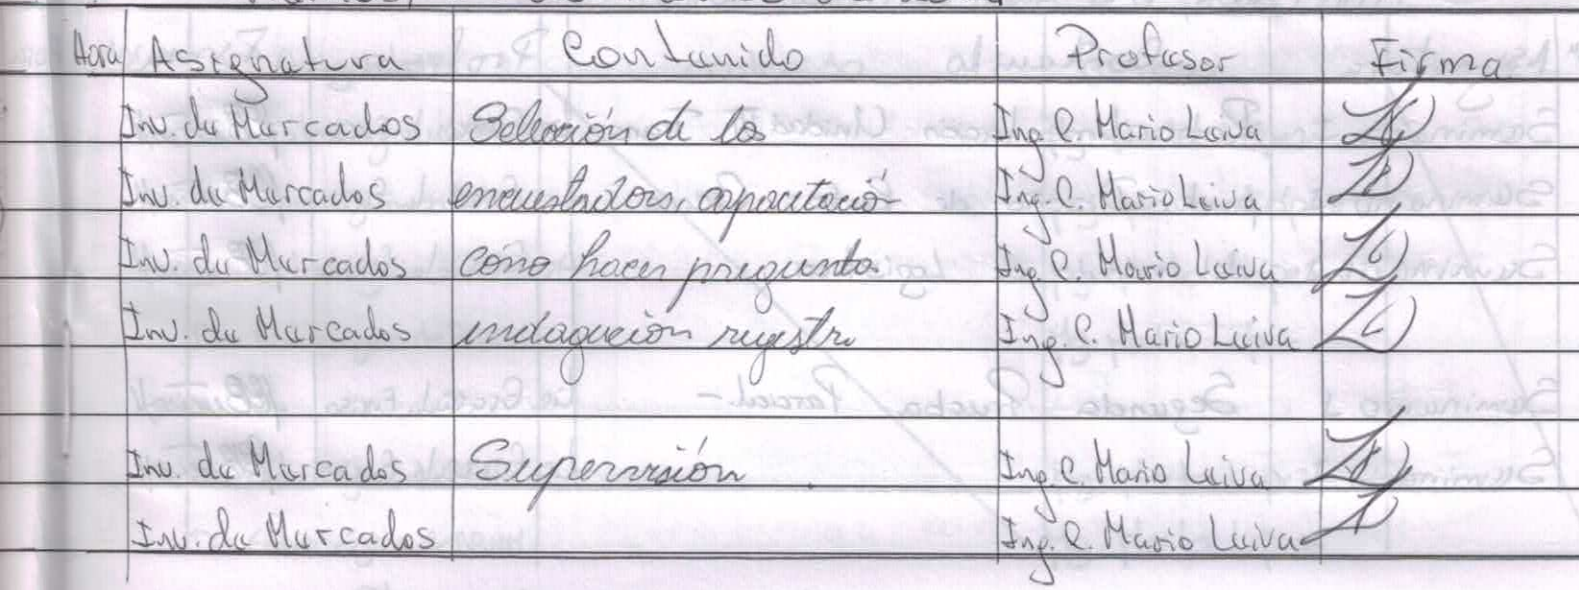 Hora Asignatura Contenido Profesor Firma
Inv. de Mercados Selección de los Ing. C. Mario Leiva
Inv. de Mercados encuestadores, capacitació Ing. C. Mario Leiva
Inv. de Mercados como hacer pregunta Ing. C. Mario Leiva
Inv. de Mercados indagación registro Ing. C. Mario Leiva
Inv. de Mercados Supervisión Ing. C. Mario Leiva
Inv. de Mercados Ing. C. Mario Leiva